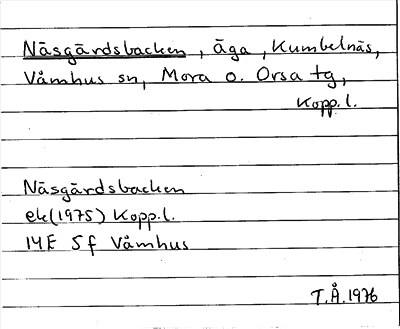 Näsgårdsbacken, äga, Kumbelnäs,
Våmhus sn, Mora o. Orsa tg,
Kopp. l.
Näsgårdsbacken
ek(1975) Kopp. l.
14E 5f Våmhus
T.Å. 1976